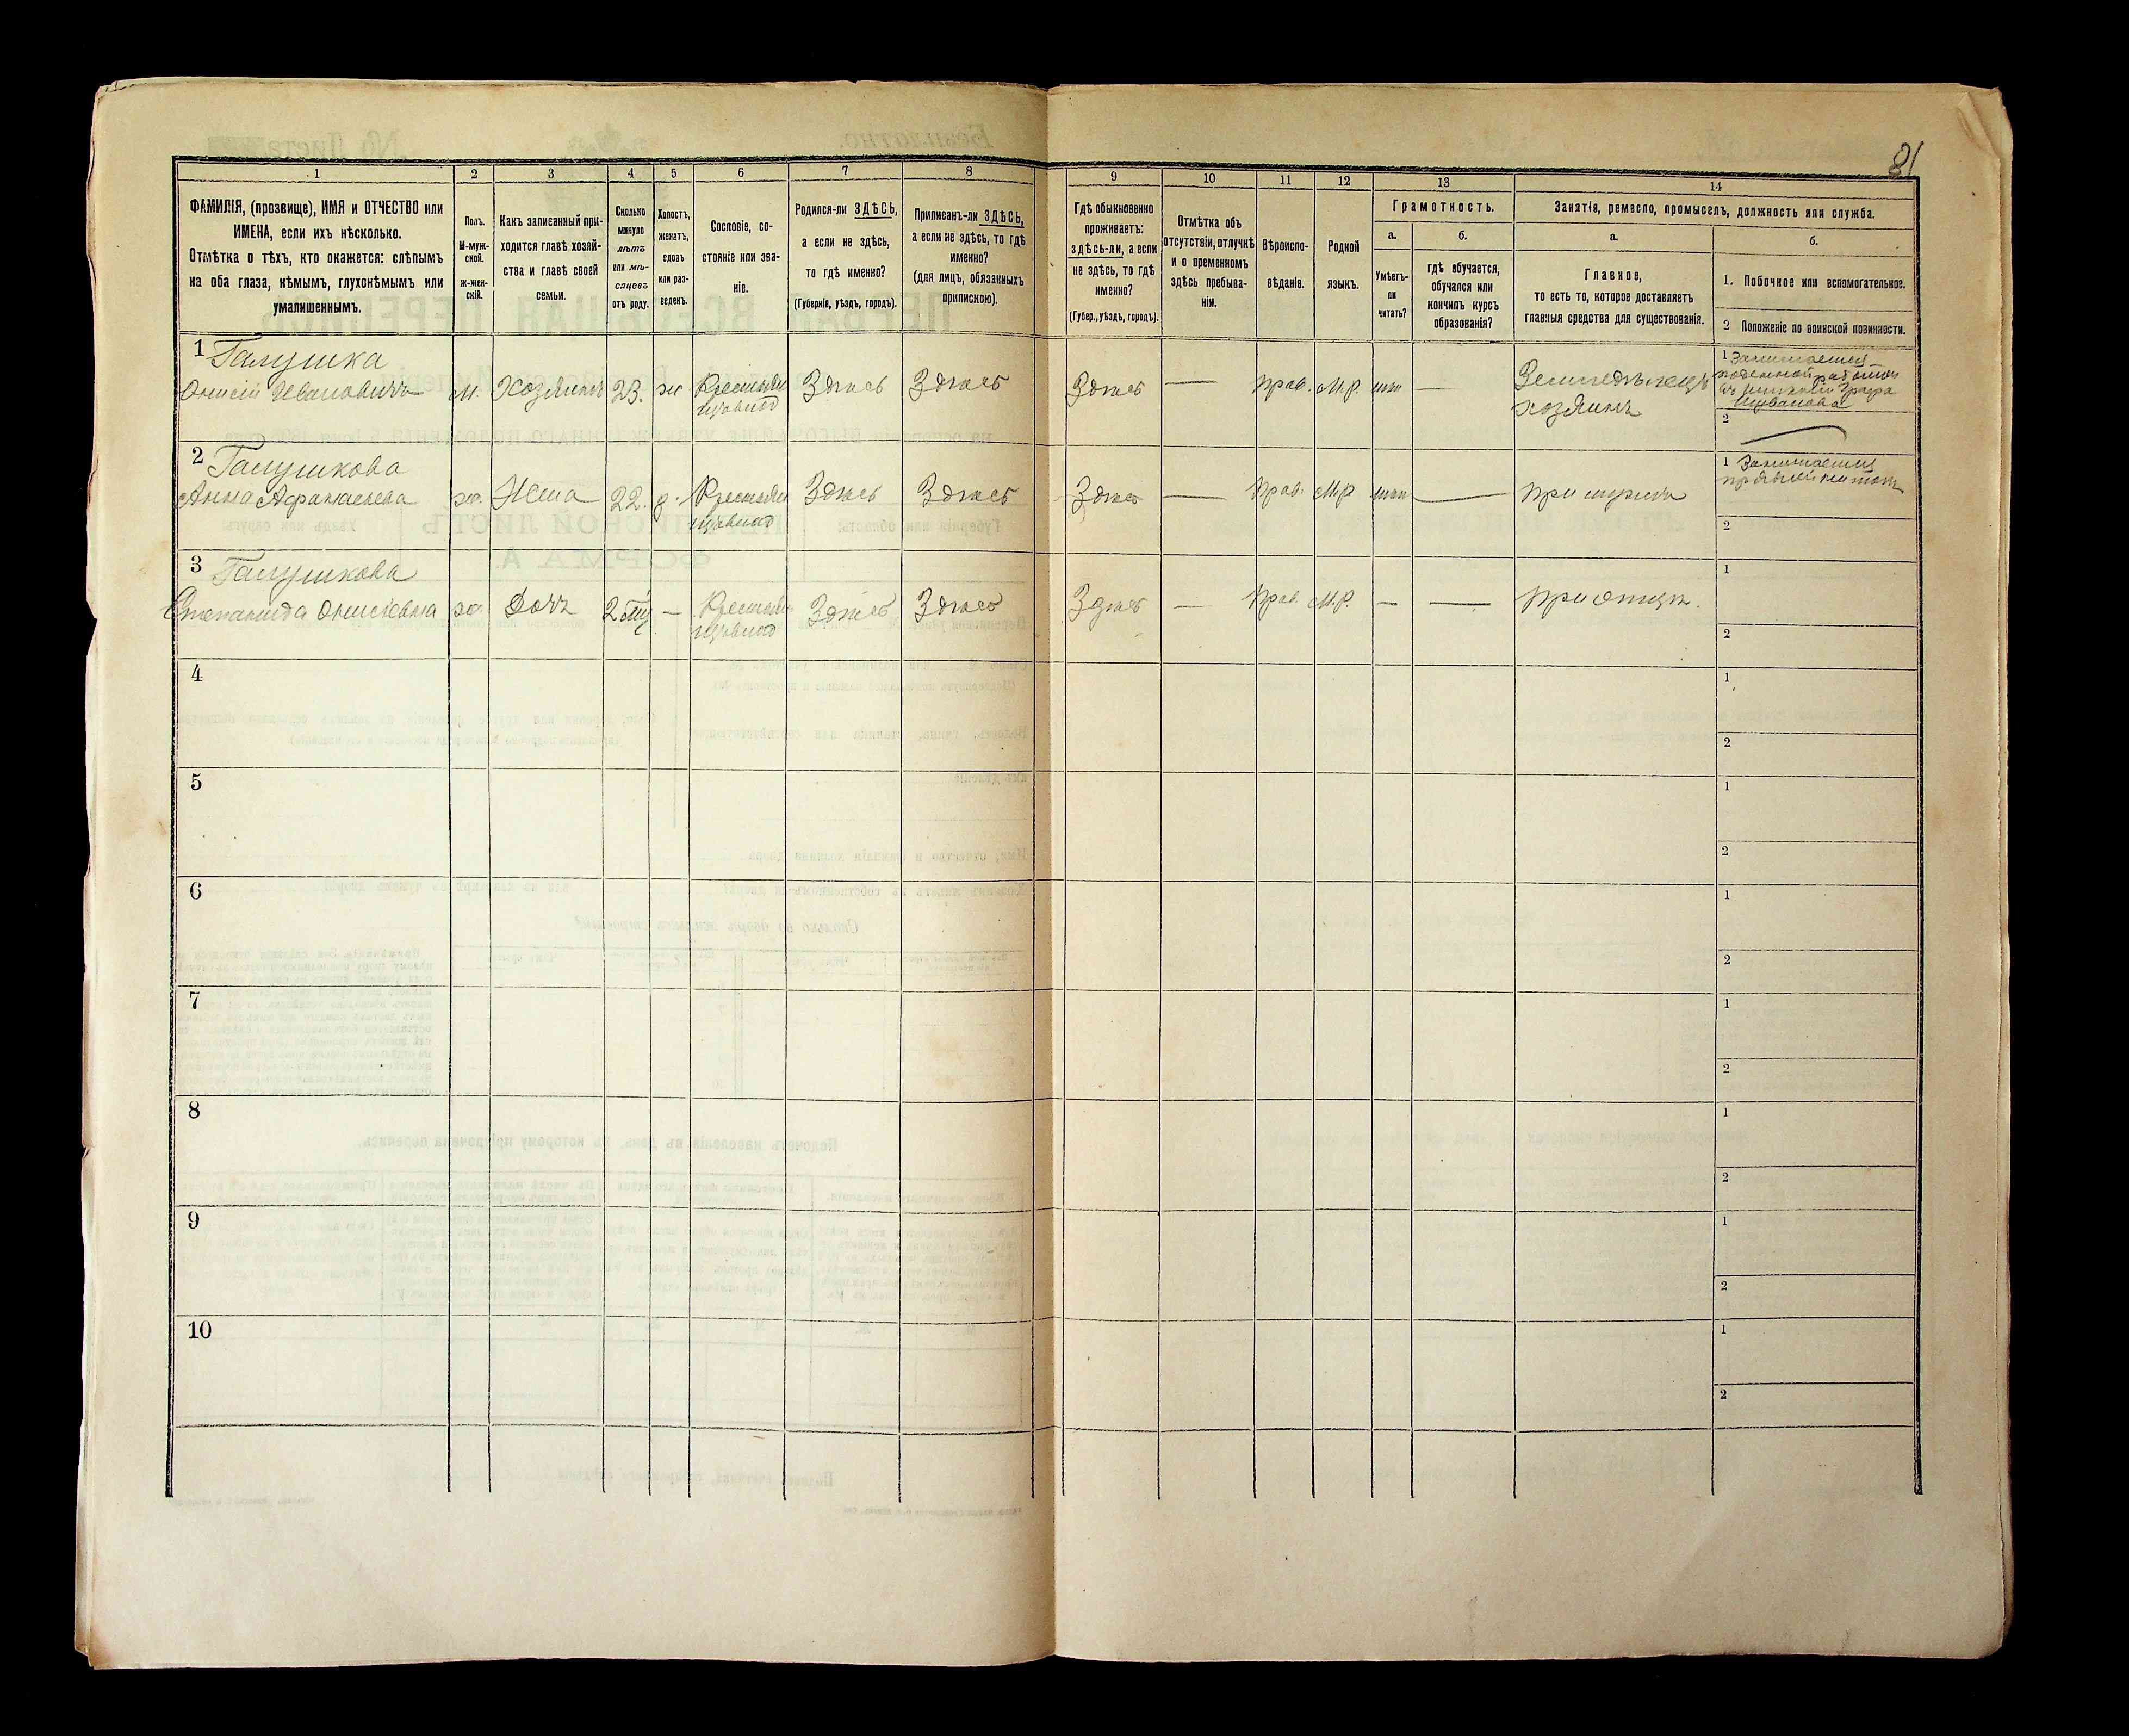 81
1 2 3 4 5 6 7 8 9 10 11 12 13 14
ФАМИЛІЯ, (прозвище), ИМЯ и ОТЧЕСТВО или
ИМЕНА, если ихъ нѣсколько.
Отмѣтка о тѣхъ, кто окажется: слѣпымъ
на оба глаза, нѣмымъ, глухонѣмымъ или
умалишеннымъ.
Полъ.
М-муж-
ской.
Ж-жен-
скій.
Какъ записанный при-
ходится главѣ хозяй-
ства и главѣ своей
семьи.
Сколько
минуло
лѣтъ
или мѣ-
сяцевъ
отъ роду.
Холостъ,
женатъ,
вдовъ
или раз-
веденъ.
Сословіе, со-
стояніе или зва-
ніе.
Родился-ли ЗДѢСЬ,
а если не здѣсь,
то гдѣ именно?
(Губернія, уѣздъ, городъ).
Приписанъ-ли ЗДѢСЬ,
а если не здѣсь, то гдѣ
именно?
(для лицъ, обязанныхъ
припискою).
Гдѣ обыкновенно
проживаетъ:
здѣсь-ли, а если
не здѣсь, то гдѣ
именно?
(Губер., уѣздъ, городъ).
Отмѣтка объ
отсутствіи, отлучкѣ
и о временномъ
здѣсь пребыва-
ніи.
Вѣроиспо-
вѣданіе.
Родной
языкъ.
Грамотность.
а.
Умѣетъ-
ли
читать?
б.
гдѣ обучается,
обучался или
кончилъ курсъ
образованія?
Занятія, ремесло, промыселъ, должность или служба.
а.
Главное,
то есть то, которое доставляетъ
главныя средства для существованія.
б.
1. Побочное или вспомогательное.
2 Положеніе по воинской повинности.
1 Галушка
Онисій Ивановичъ м. Хозяинъ 23. ж Крестьян Здѣсь Здѣсь Здѣсь — прав. М.р. — Земледѣлецъ
хозяинъ
1 Занимается
2
2 Галушкова
Анна Афанасьева ж. Жена 22. Крестьян Здѣсь Здѣсь Здѣсь — прав. М.р. — при мужѣ
1 Занимается
2
3 Галушкова
Степанида Онисіевна ж. Дочь 2 — Крестьян Здѣсь Здѣсь Здѣсь — прав. М.р. — — при отцѣ.
1
2
4 1
2
5 1
2
6 1
2
7 1
2
8 1
2
9 1
2
10 1
2